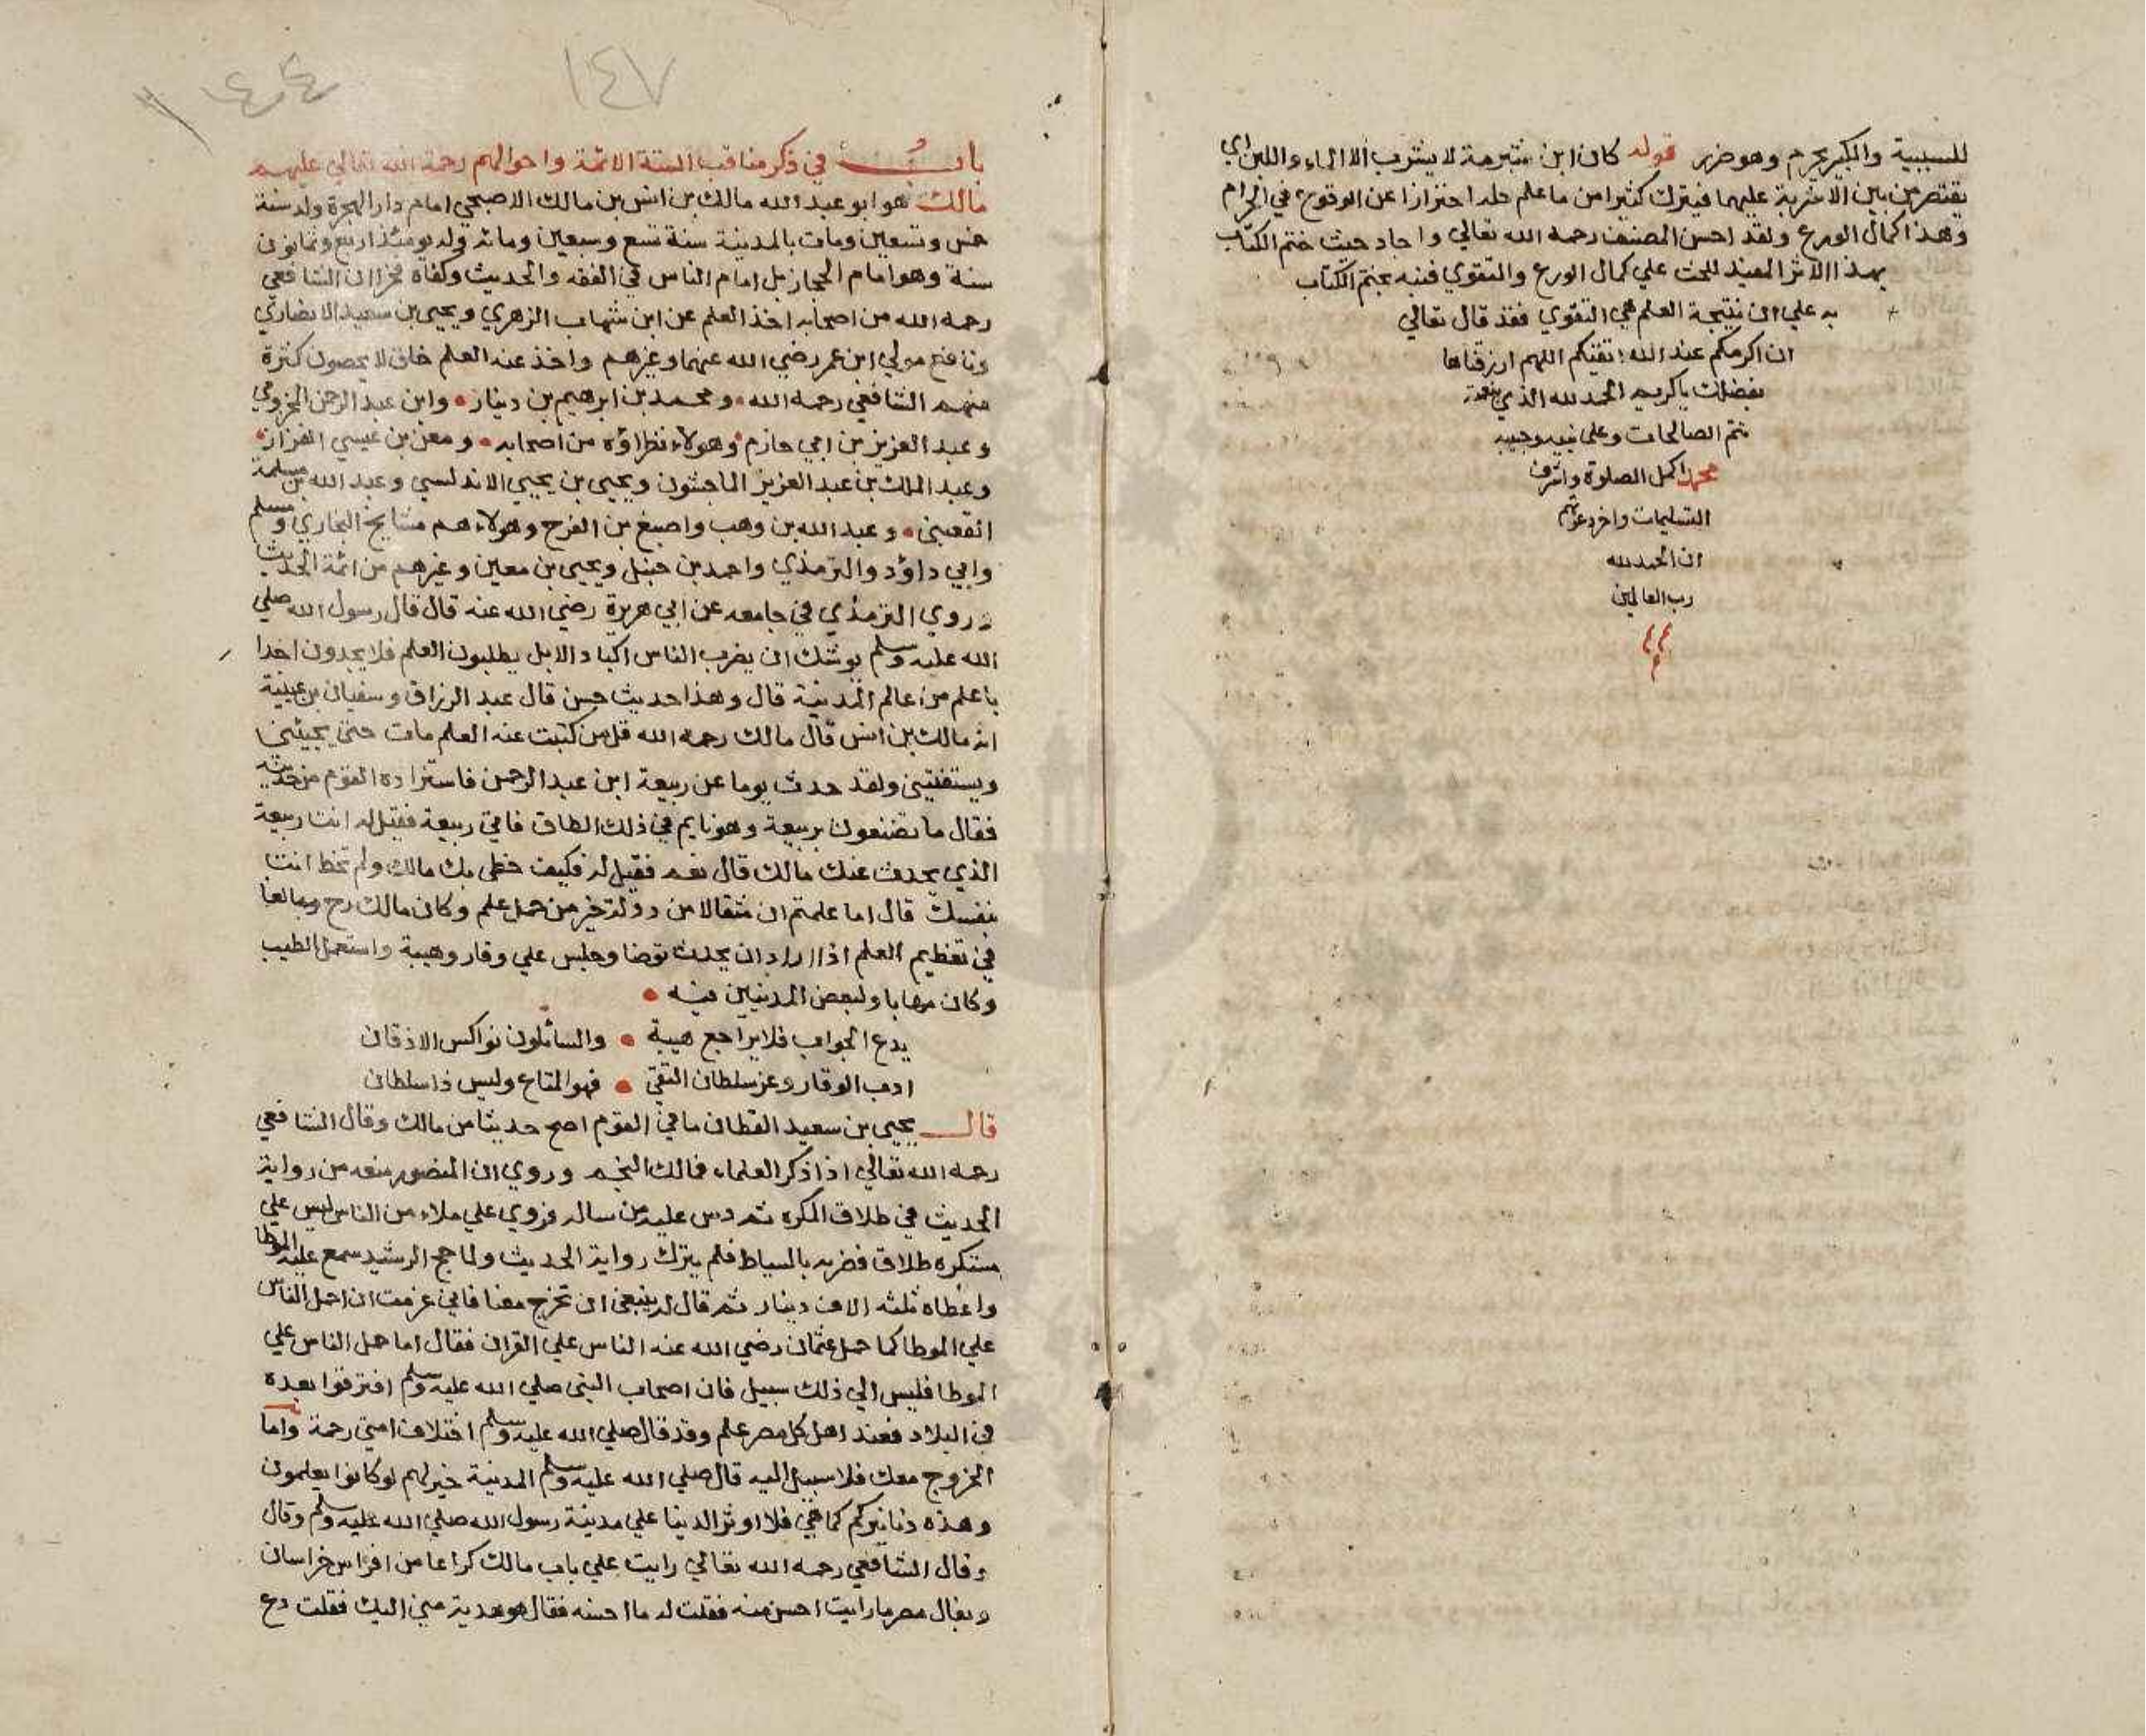 للسببية والكبير يحرم وهو ضرير قوله كان ابن شبرمة لا يشرب الا الماء واللبن اي
يقتصر من بين الاشربة عليهما فيترك كثيرا من ما علم حله احترازا عن الوقوع في الحرام
وهذا كمال الورع ولقد احسن المصنف رحمه الله تعالي واجاد حيث ختم الكتاب
بهذا الاثر المفيد للحث علي كمال الورع والتقوي فنبه بختم الكتاب
به علي ان نتيجة العلم هي التقوي فقد قال تعالي
ان اكرمكم عند الله اتقيكم اللهم ارزقناها
بفضلك ياكريم الحمد لله الذي بنعمته
تتم الصالحات وعلي نبيه وحبيبه
محمد اكمل الصلوة واشرف
التسليمات واخر دعوٰيهم
ان الحمد لله
رب العالمين
١٤٧
١٤٤
باب في ذكر مناقب الستة الائمة واحوالهم رحمة الله تعالي عليهم
مالك هو ابو عبد الله مالك بن انس بن مالك الاصبحي امام دار الهجرة ولد سنة
خمس وتسعين ومات بالمدينة سنة تسع وسبعين ومائة وله يومئذ اربع وثمانون
سنة وهو امام الحجاز بل امام الناس في الفقه والحديث وكفاه فخرا ان الشافعي
رحمه الله من اصحابه اخذ العلم عن ابن شهاب الزهري ويحيي بن سعيد الانصاري
ونافع مولي ابن عمر رضي الله عنهما وغيرهم واخذ عنه العلم خلق لا يحصون كثرة
منهم الشافعي رحمه الله ومحمد بن ابرهيم بن دينار وابن عبد الرحمن المخزومي
وعبد العزيز بن ابي حازم وهولاء نظراؤه من اصحابه ومعن بن عيسي القزاز
وعبد الملك بن عبد العزيز الماجشون ويحيي بن يحيي الاندلسي وعبد الله بن مسلمة
القعنبي وعبد الله بن وهب واصبغ بن الفرج وهولاء هم مشايخ البخاري ومسلم
وابي داؤد والترمذي واحمد بن حنبل ويحيي بن معين وغيرهم من ائمة الحديث
وروي الترمذي في جامعه عن ابي هريرة رضي الله عنه قال قال رسول الله صلي
الله عليه وسلم يوشك ان يضرب الناس اكباد الابل يطلبون العلم فلا يجدون احدا
باعلم من عالم المدينة قال وهذا حديث حسن قال عبد الرزاق وسفيان بن عيينة
انه مالك بن انس قال مالك رحمه الله قل من كتبت عنه العلم مات حتي يجيئني
ويستفتيني ولقد حدث يوما عن ربيعة ابن عبد الرحمن فاستزاده القوم من حديثه
فقال ما تصنعون بربيعة وهو نايم في ذلك الطاق فاتي ربيعة فقيل له انت ربيعة
الذي يحدث عنك مالك قال نعم فقيل له فكيف حظي بك مالك ولم تحظ انت
بنفسك قال اما علمتم ان مثقالا من دولة خير من حمل علم وكان مالك رح مبالغا
في تعظيم العلم اذا اراد ان يحدث توضا وجلس علي وقار وهيبة واستعمل الطيب
وكان مهابا ولبعض المدنيين فيه
يدع الجواب فلا يراجع هيبة والسائلون نواكس الاذقان
ادب الوقار وعز سلطان التقي فهو المتاع وليس ذا سلطان
قال يحيي بن سعيد القطان ما في القوم اصح حديثا من مالك وقال الشافعي
رحمه الله تعالي اذا ذكر العلماء فمالك النجم وروي ان المنصور منعه من رواية
الحديث في طلاق المكره ثم دس عليه من ساله فروي علي ملاء من الناس ليس علي
مستكره طلاق فضربه بالسياط فلم يترك رواية الحديث ولما حج الرشيد سمع عليه الموطا
واعطاه ثلثه الاف دينار ثم قال له ينبغي ان تخرج معنا فاني عزمت ان احمل الناس
علي الموطا كما حمل عثمان رضي الله عنه الناس علي القران فقال اما حمل الناس علي
الموطا فليس الي ذلك سبيل فان اصحاب النبي صلي الله عليه وسلم افترقوا بعده
في البلاد فعند اهل كل مصر علم وقد قال صلي الله عليه وسلم اختلاف امتي رحمة واما
الخروج معك فلا سبيل اليه قال صلي الله عليه وسلم المدينة خير لهم لو كانوا يعلمون
وهذه دنانيركم كما هي فلا اوثر الدنيا علي مدينة رسول الله صلي الله عليه وسلم وقال
وقال الشافعي رحمه الله تعالي رايت علي باب مالك كراعا من افراس خراسان
وبغال مصر ما رايت احسن منه فقلت له ما احسنه فقال هو هدية مني اليك فقلت دع